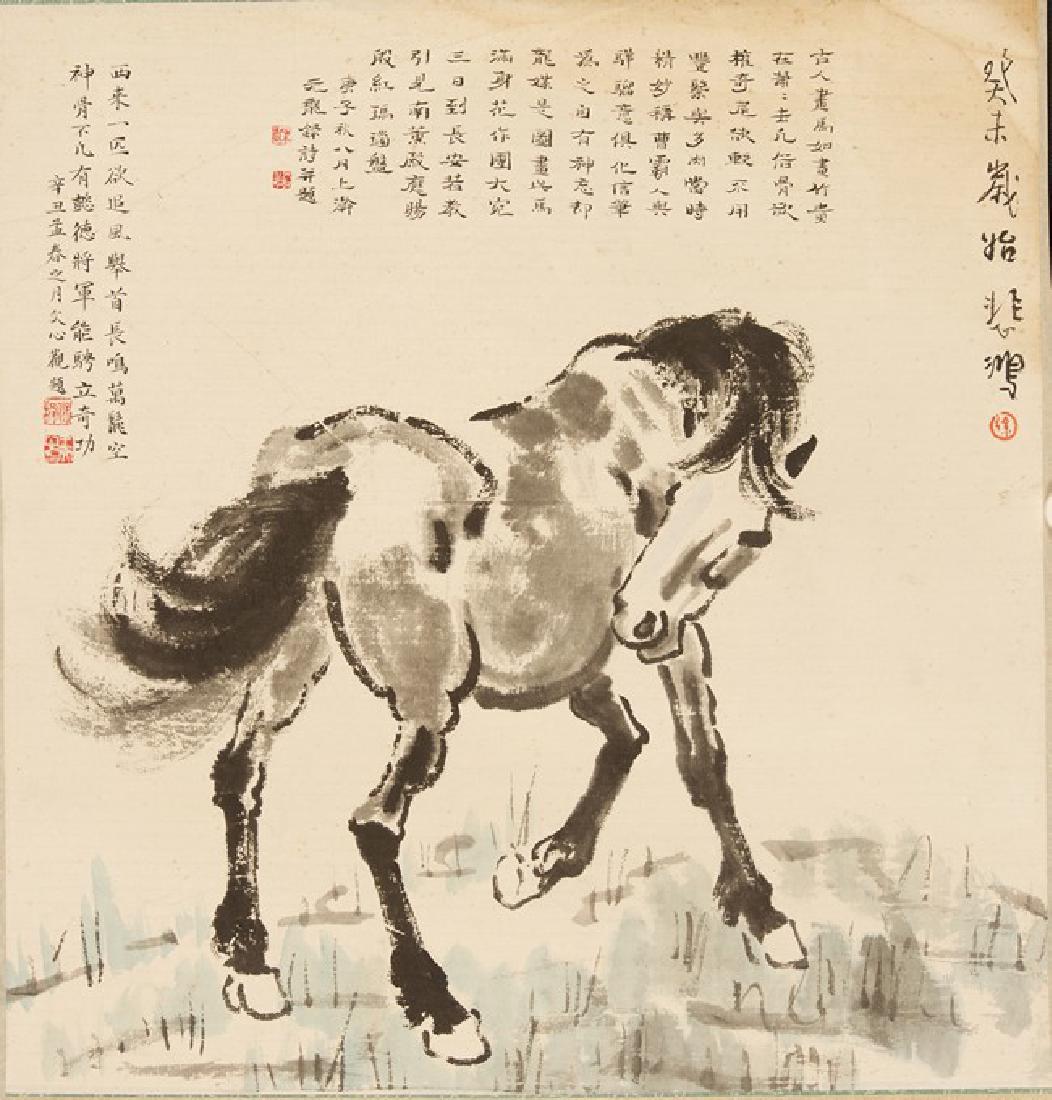 癸未歲始悲鴻
古人畫馬如畫竹貴
在蕭〻去凡俗骨欲
權奇尾欲輭不用
豐鬃與多肉當時
精妙稱曹霸人與
驊騮意俱化信筆
為之自有神忽却
龍媒是圖畫此馬
滿身花作團大宛
三日到長安若教
引見南薰殿應賜
殷紅瑪瑙盤
庚子秋八月上澣
元龍錄詩并題
西來一匹欲追風舉首長鳴萬騎空
神骨不凡有懿德將軍能騁立奇功
辛丑孟春之月文心觀題